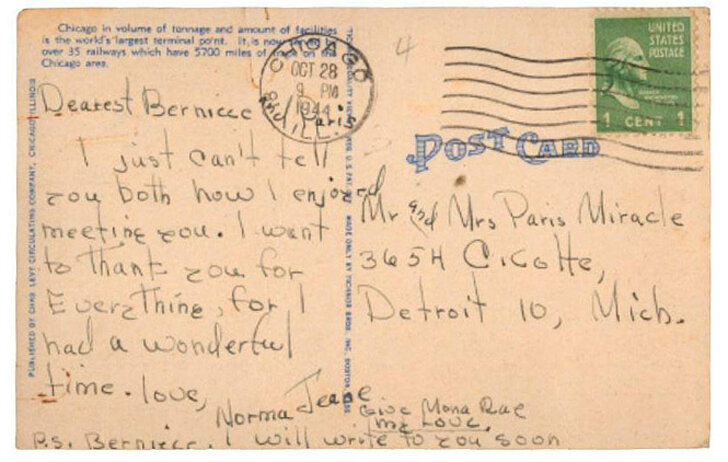 Chicago in volume of tonnage and amount of facilities
is the world's largest terminal point. It is now
over 35 railways which have 5700 miles of in the
Chicago area.
CHICAGO
OCT 28
9 PM
1944
ILL.
4
UNITED
STATES
POSTAGE
1 CENT 1
POST CARD
PUBLISHED BY CHAS. LEVY CIRCULATING COMPANY, CHICAGO, ILLINOIS
Dearest Berniece
and Paris
I just can't tell
you both how I enjoyed
meeting you. I want
to thank you for
Everything, for I
had a wonderful
time. love,
Norma Jeane
P.S. Berniece. I will write to you soon
MADE ONLY BY TICHNOR BROS., INC., BOSTON, MASS
Mr and Mrs Paris Miracle
3654 Cicotte,
Detroit 10, Mich.
Give Mona Rae
my Love.